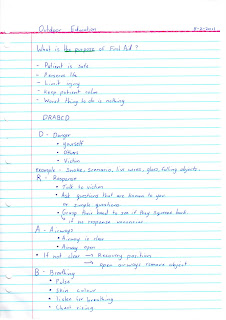 Outdoor Education
What is the purpose of First Aid?
- Patient is safe
- Preserve life
- Limit injury
- Keep patient calm
- Worst thing to do is nothing
DRABCD
D - Danger
• Yourself
• Others
• Victim
Example - Smoke, Scenarios, live wires, glass, falling objects.
R - Response
• Talk to victim
• Ask questions that are known to you
or simple questions
• Grasp their hand to see if they squeeze back
if no response
A - Airways
• Airway is clear
• Airway open
• If not clear → Recovery position
→ open airways remove object
B - Breathing
• Pulse
• Skin colour
• Listen for breathing
• Chest rising